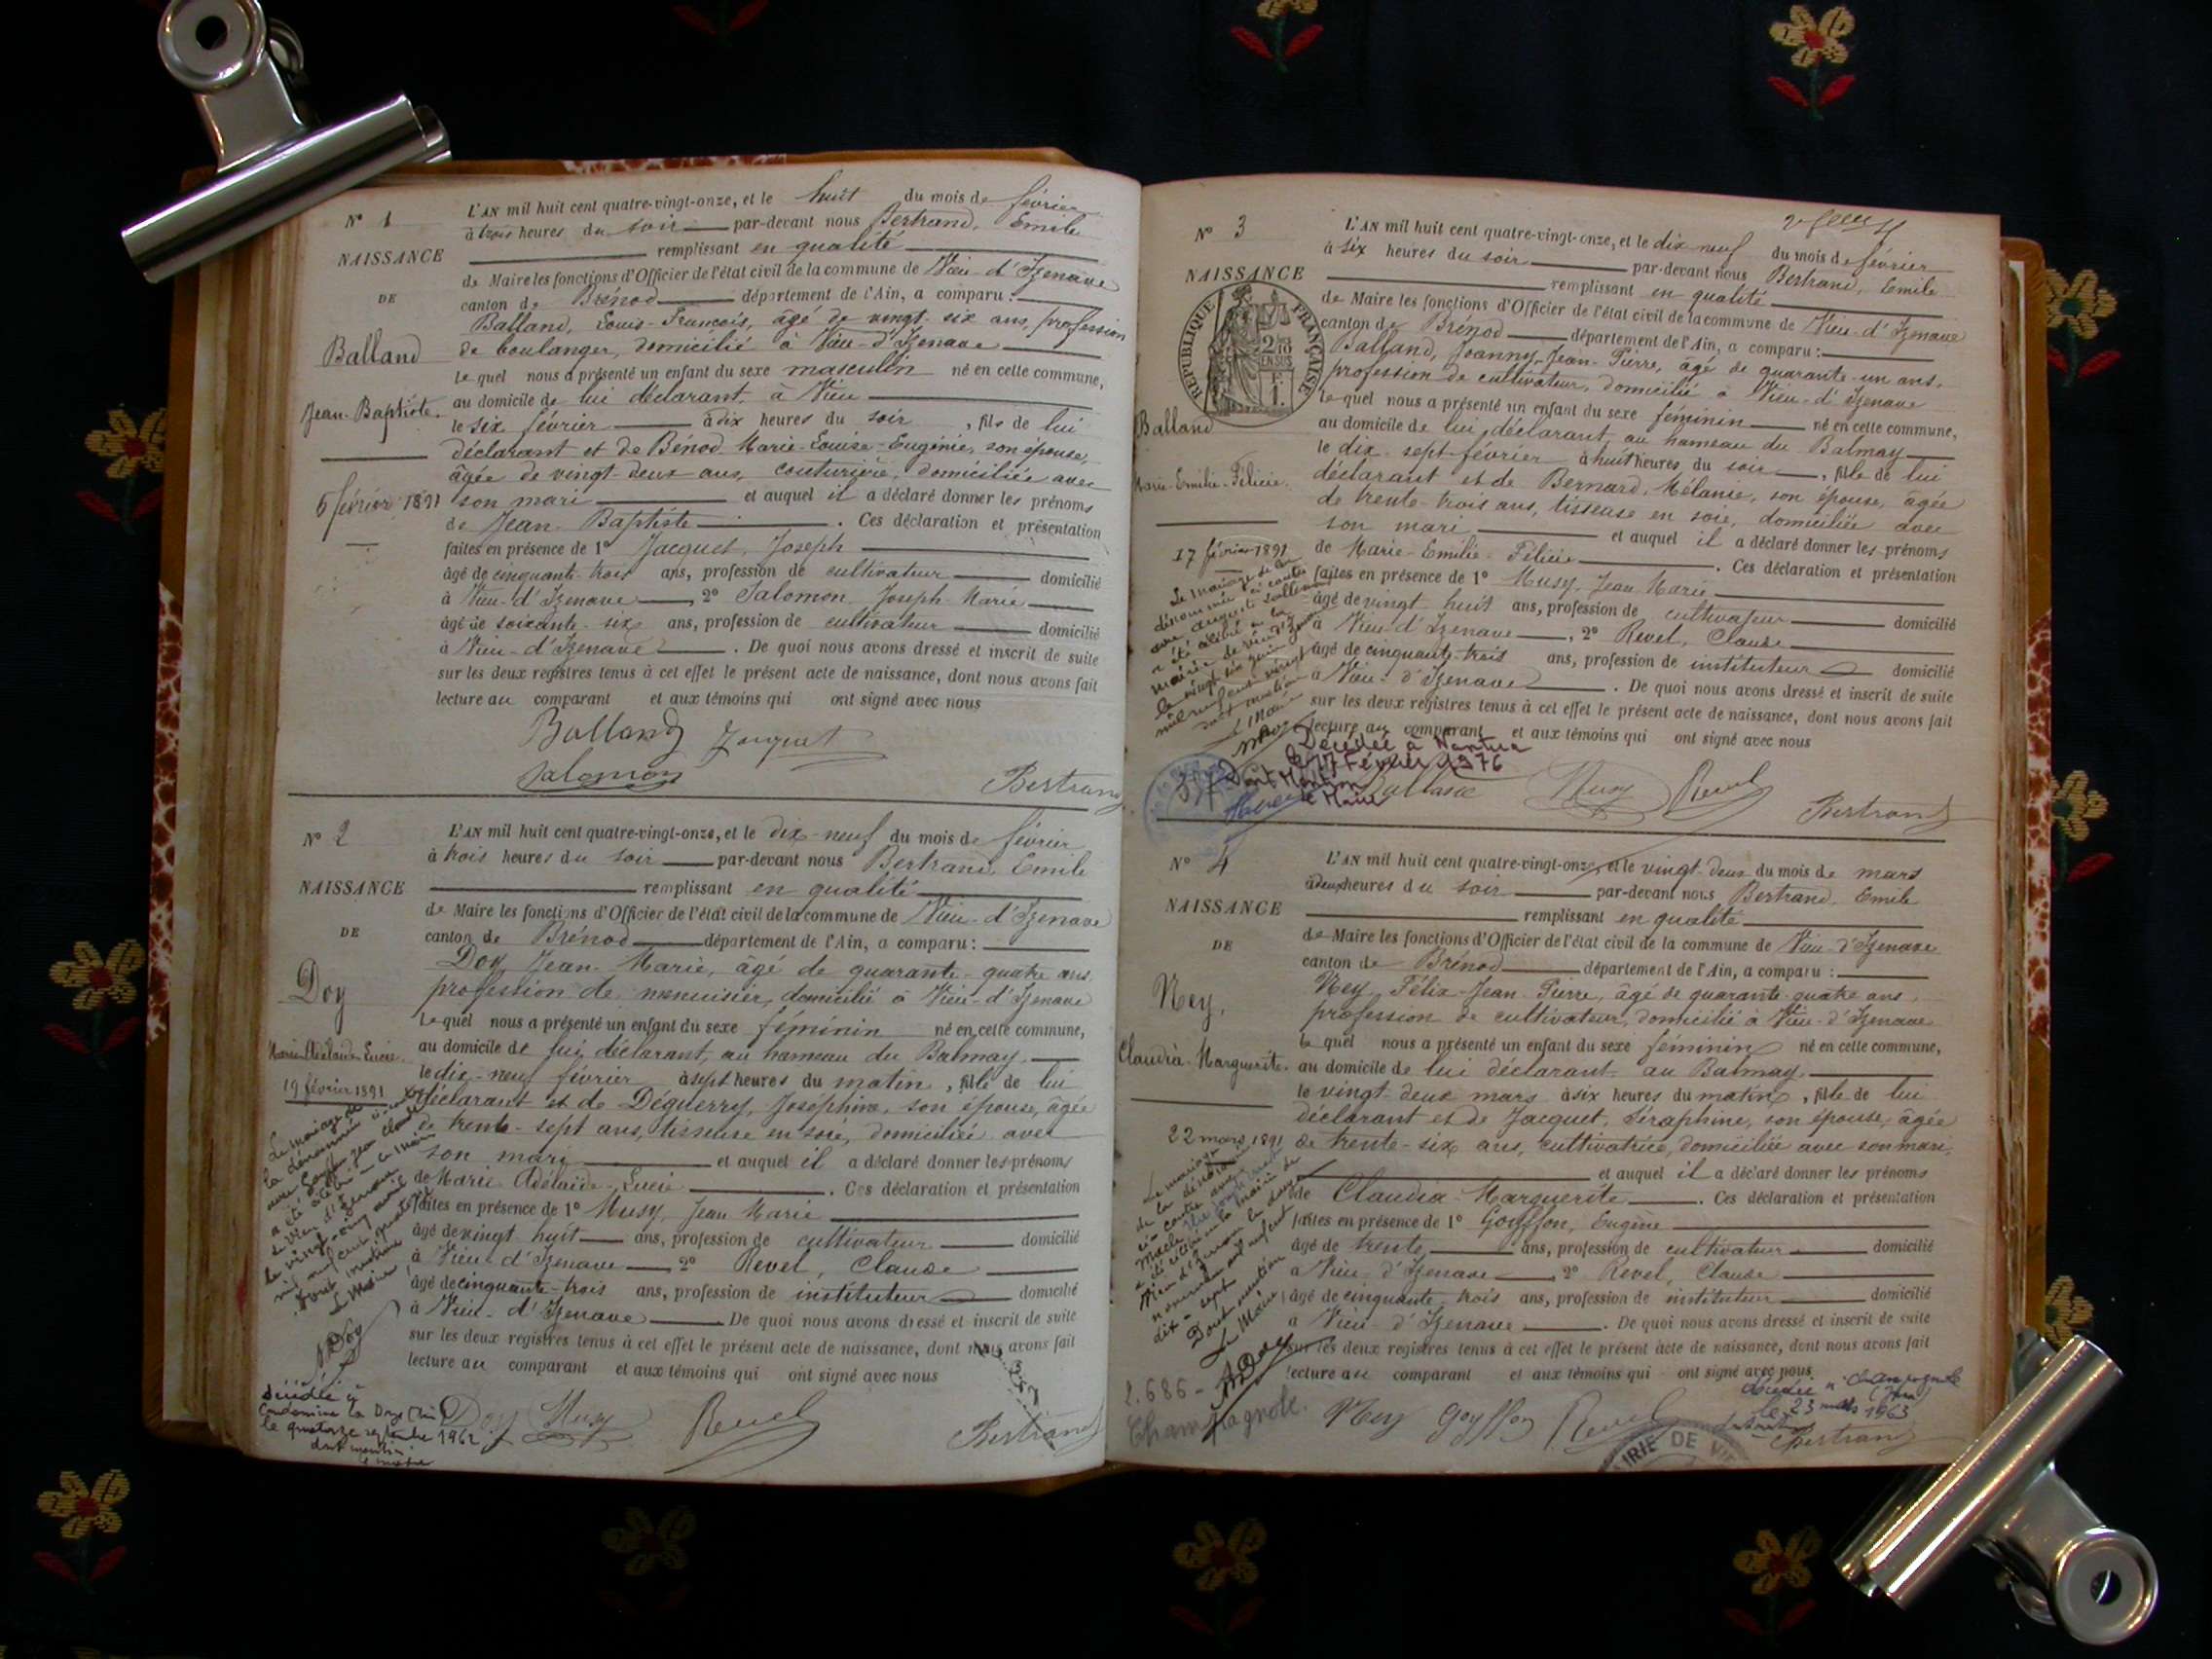 N° 1
NAISSANCE
DE
Balland
Jean-Baptiste.
6 février 1891
L'AN mil huit cent quatre-vingt-onze, et le huit du mois de février
à trois heures du soir par-devant nous Bertrand, Emile
remplissant en qualité
de Maire les fonctions d'Officier de l'état civil de la commune de Vieu-d'Izenave
canton de Brénod département de l'Ain, a comparu :
Balland, Louis-François, âgé de vingt-six ans, profession
de boulanger, domicilié à Vieu-d'Izenave
lequel nous a présenté un enfant du sexe masculin né en cette commune,
au domicile de lui déclarant, à Vieu
le six février à dix heures du soir, fils de lui
déclarant et de Bénod Marie-Louise-Eugénie, son épouse,
âgée de vingt-deux ans, couturière, domiciliée avec
son mari et auquel il a déclaré donner les prénoms
de Jean-Baptiste. Ces déclaration et présentation
faites en présence de 1° Jacquet, Joseph
âgé de cinquante-trois ans, profession de cultivateur domicilié
à Vieu-d'Izenave, 2° Salomon Joseph-Marie
âgé de soixante-six ans, profession de cultivateur domicilié
à Vieu-d'Izenave. De quoi nous avons dressé et inscrit de suite
sur les deux registres tenus à cet effet le présent acte de naissance, dont nous avons fait
lecture au comparant et aux témoins qui ont signé avec nous
Balland Jacquet
Salomon
Bertrand
N° 2
NAISSANCE
DE
Doy
Marie-Adélaïde-Lucie.
19 février 1891
L'AN mil huit cent quatre-vingt-onze, et le dix-neuf du mois de février
à trois heures du soir par-devant nous Bertrand, Emile
remplissant en qualité
de Maire les fonctions d'Officier de l'état civil de la commune de Vieu-d'Izenave
canton de Brénod département de l'Ain, a comparu :
Doy, Jean-Marie, âgé de quarante-quatre ans
profession de menuisier, domicilié à Vieu-d'Izenave
lequel nous a présenté un enfant du sexe féminin né en cette commune,
au domicile de lui, déclarant, au hameau du Balmay
le dix-neuf février à sept heures du matin, fille de lui
déclarant et de Déguerry, Joséphine, son épouse, âgée
de trente-sept ans, tisseuse en soie, domiciliée avec
son mari et auquel il a déclaré donner les prénoms
de Marie Adélaïde-Lucie. Ces déclaration et présentation
faites en présence de 1° Musy, Jean Marie
âgé de vingt-huit ans, profession de cultivateur domicilié
à Vieu d'Izenave 2° Revel, Claude
âgé de cinquante-trois ans, profession de instituteur domicilié
à Vieu-d'Izenave De quoi nous avons dressé et inscrit de suite
sur les deux registres tenus à cet effet le présent acte de naissance, dont nous avons fait
lecture au comparant et aux témoins qui ont signé avec nous
Le mariage de
la dénommée ci-contre
a été célébré à la mairie
de Vieu d'Izenave
le vingt-cinq
mil neuf cent
Dont mention
Le Maire
Doy
Décédée à
Condamine la Doye (Ain)
le quatorze septembre 1962
dont mention
le maire
Doy Musy Revel Bertrand
N° 3
NAISSANCE
RÉPUBLIQUE FRANÇAISE
Balland
Marie-Emilie-Félicie.
17 février 1891
L'AN mil huit cent quatre-vingt-onze, et le dix neuf du mois de février
à six heures du soir par-devant nous Bertrand, Emile
remplissant en qualité
de Maire les fonctions d'Officier de l'état civil de la commune de Vieu-d'Izenave
canton de Brénod département de l'Ain, a comparu :
Balland, Joanny-Jean-Pierre, âgé de quarante-un ans,
profession de cultivateur, domicilié à Vieu-d'Izenave
lequel nous a présenté un enfant du sexe féminin né en cette commune,
au domicile de lui, déclarant, au hameau du Balmay
le dix-sept février à huit heures du soir, fille de lui
déclarant et de Bernard, Mélanie, son épouse, âgée
de trente-trois ans, tisseuse en soie, domiciliée avec
son mari et auquel il a déclaré donner les prénoms
de Marie-Emilie-Félicie. Ces déclaration et présentation
faites en présence de 1° Musy, Jean Marie
âgé de vingt-huit ans, profession de cultivateur domicilié
à Vieu-d'Izenave, 2° Revel, Claude
âgé de cinquante-trois ans, profession de instituteur domicilié
à Vieu-d'Izenave. De quoi nous avons dressé et inscrit de suite
sur les deux registres tenus à cet effet le présent acte de naissance, dont nous avons fait
lecture au comparant et aux témoins qui ont signé avec nous
Le mariage de la
dénommée ci-contre
a été célébré à la
mairie de Vieu d'Izenave
le vingt six juin
mil neuf cent vingt
dont mention
Le Maire
Décédée à Nantua
le 17 Février 1976
Dont Mention
le Maire
Balland Musy Revel Bertrand
N° 4
NAISSANCE
DE
Ney,
Claudia-Marguerite.
22 mars 1891
L'AN mil huit cent quatre-vingt-onze, et le vingt-deux du mois de mars
à deux heures du soir par-devant nous Bertrand, Emile
remplissant en qualité
de Maire les fonctions d'Officier de l'état civil de la commune de Vieu-d'Izenave
canton de Brénod département de l'Ain, a comparu :
Ney, Félix-Jean-Pierre, âgé de quarante-quatre ans,
profession de cultivateur, domicilié à Vieu-d'Izenave
lequel nous a présenté un enfant du sexe féminin né en cette commune,
au domicile de lui déclarant au Balmay
le vingt-deux mars à six heures du matin, fille de lui
déclarant et de Jacquet, Séraphine, son épouse, âgée
de trente-six ans, cultivatrice, domiciliée avec son mari,
et auquel il a déclaré donner les prénoms
de Claudia-Marguerite. Ces déclaration et présentation
faites en présence de 1° Goyffon, Eugène
âgé de trente ans, profession de cultivateur domicilié
à Vieu d'Izenave, 2° Revel, Claude
âgé de cinquante-trois ans, profession de instituteur domicilié
à Vieu-d'Izenave. De quoi nous avons dressé et inscrit de suite
sur les deux registres tenus à cet effet le présent acte de naissance, dont nous avons fait
lecture au comparant et aux témoins qui ont signé avec nous
Le mariage
de la dénommée
ci-contre avec
a été célébré à la mairie de
Vieu d'Izenave
mil neuf cent
dix-sept
Dont mention
Le Maire
2.686
Champagnole.
décédée à Champagnole
(Jura)
le 23 mars 1963
Ney Goyffon Revel Bertrand
MAIRIE DE